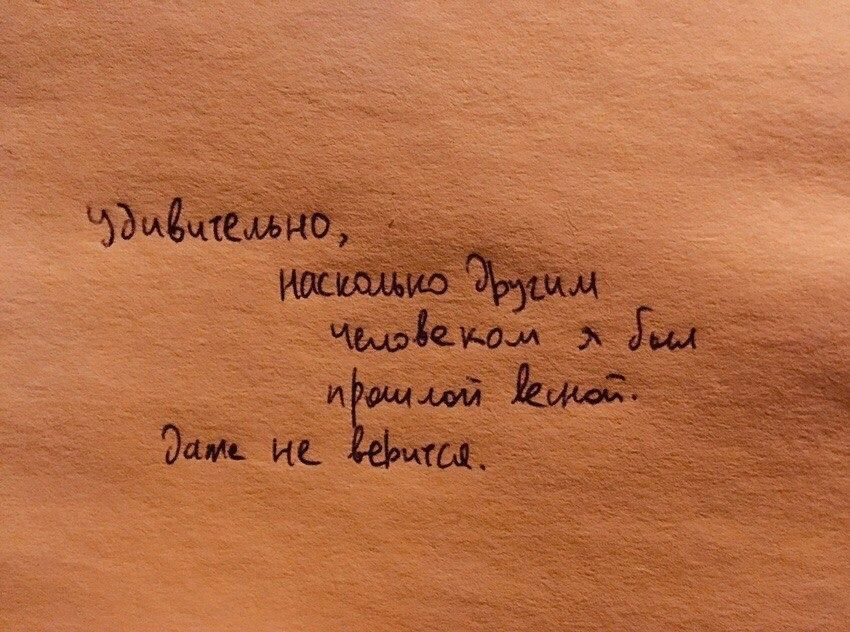 удивительно,
насколько другим
человеком я был
прошлой весной.
даже не верится.